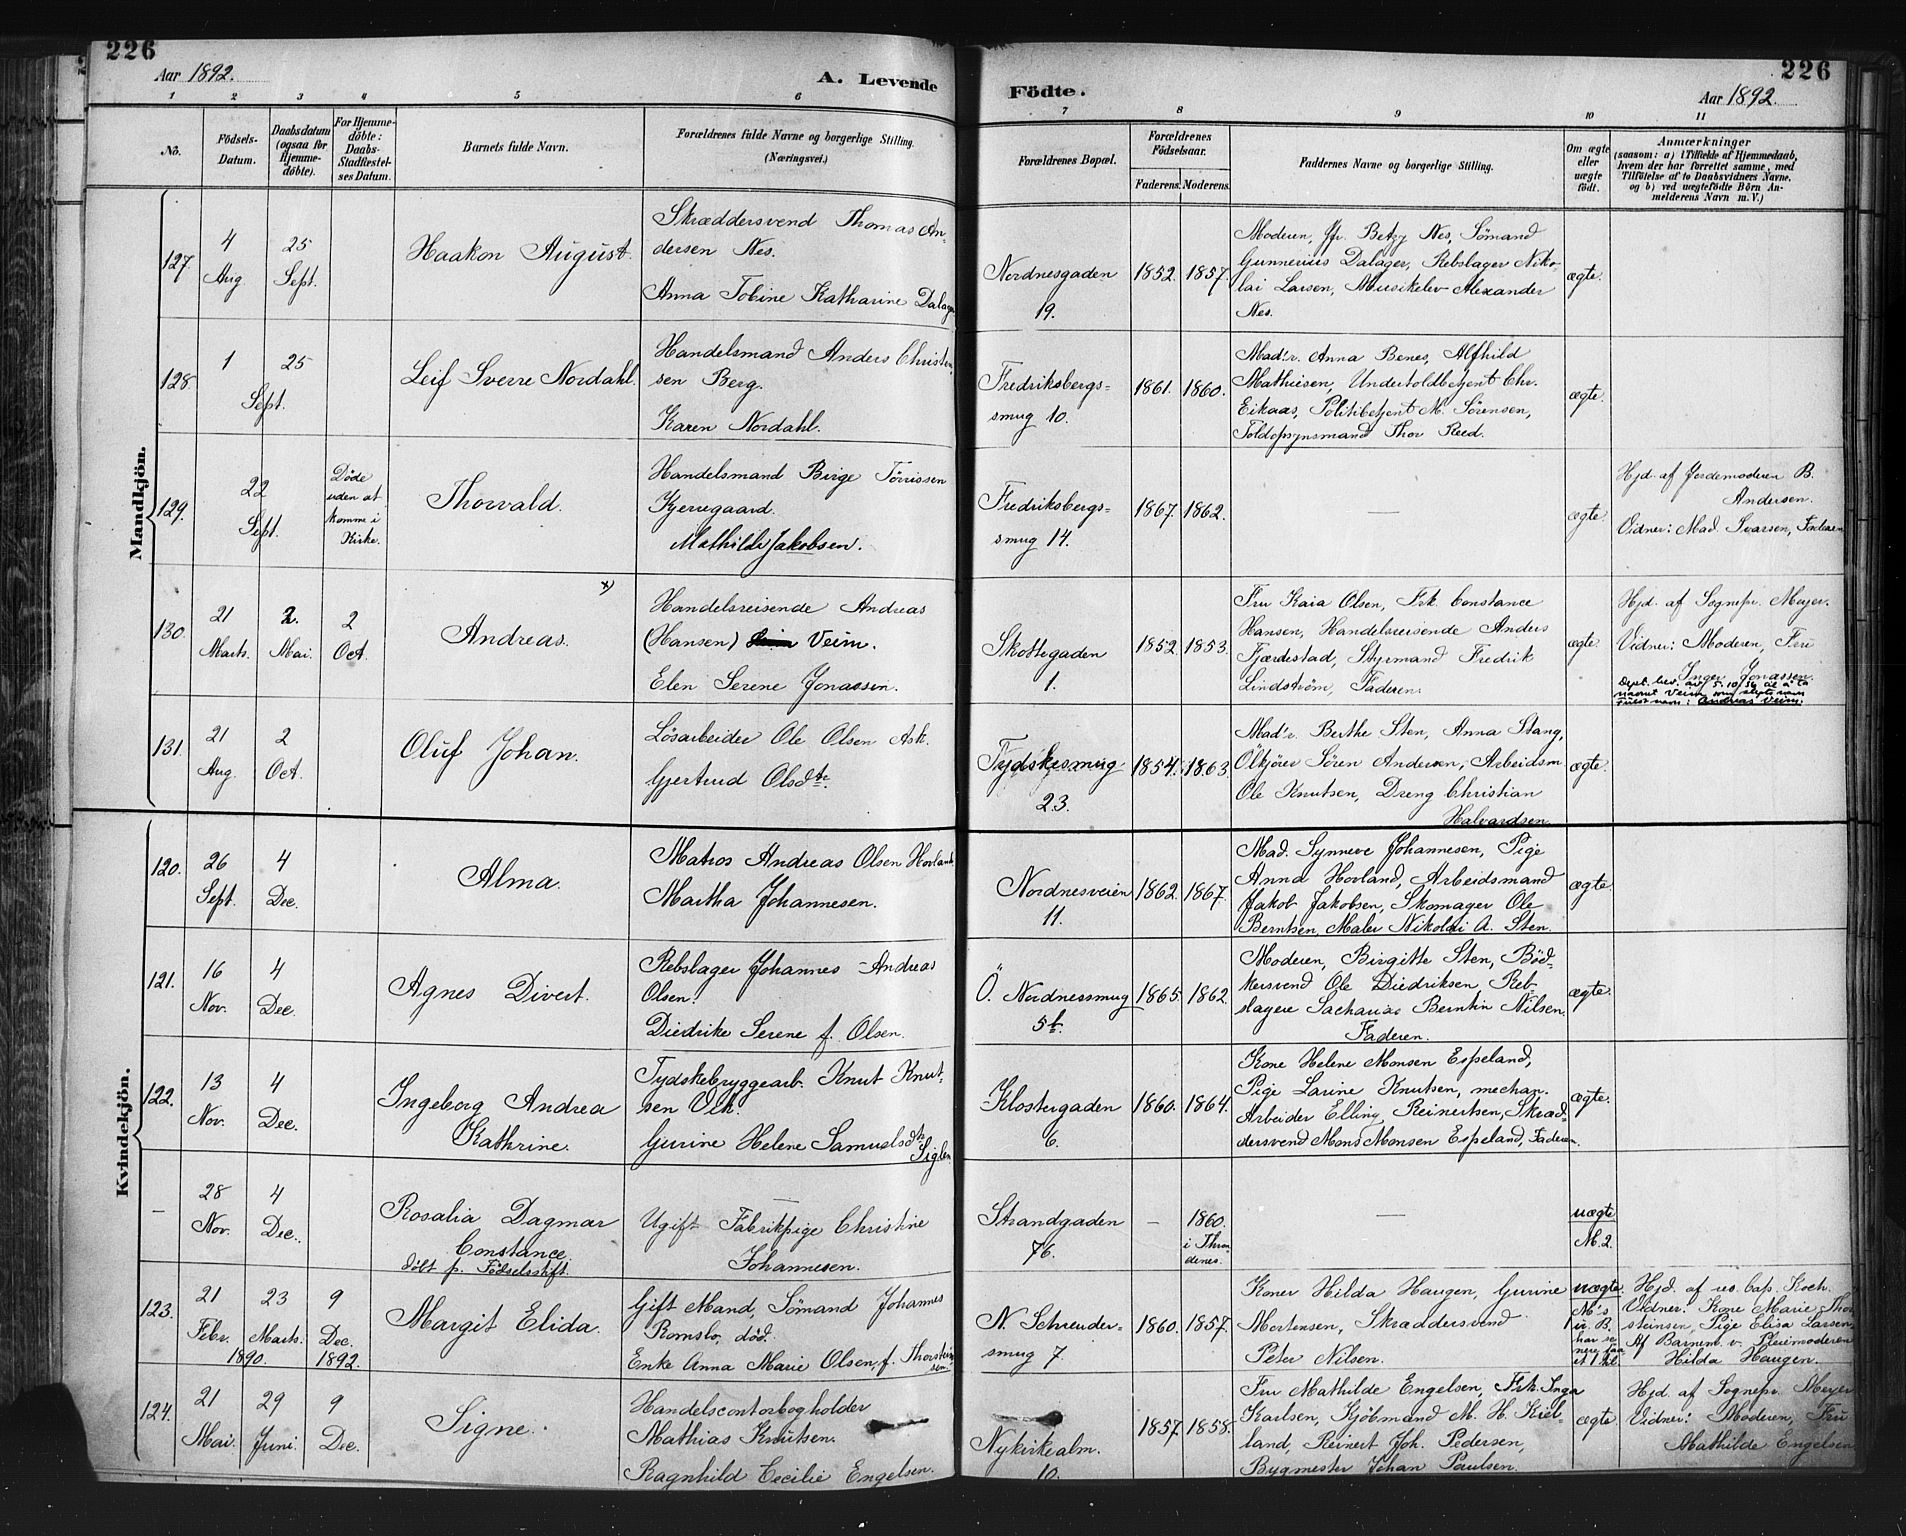 226
226
Aar 1892.
A. Levende
Födte.
Aar 1892.
1 2 3 4 5 6 7 8 9 10 11
No.
Födsels-
Datum.
Daabsdatum
(ogsaa for
Hjemme-
döbte).
For Hjemme-
döbte:
Daabs-
Stadfæstel-
ses Datum.
Barnets fulde Navn.
Forældrenes fulde Navne og borgerlige Stilling.
(Næringsvei.)
Forældrenes Bopæl.
Forældrenes
Födselsaar.
Faderens. Moderens.
Faddernes Navne og borgerlige Stilling.
Om ægte
eller
uægte
födt.
Anmærkninger
(saasom: a) i Tilfælde af Hjemmedaab,
hvem der har forrettet samme, med
Tilföielse af to Daabsvidners Navne,
og b) ved uægtefödte Börn An-
melderens Navn m. V.)
Mandkjön.
127.
4
Aug
25
Sept.
Haakon August.
Skræddersvend Thomas An-
dersen Nes.
Anna Tobine Katharine Dalager
Nordnesgaden
19.
1852. 1857.
Moderen, Jfr. Betzy Nes, Sømand
Gunnerius Dalager, Rebslager Niko-
lai Larsen, Musikelev Alexander
Nes.
ægte.
128
1
25
Sept.
Leif Sverre Nordahl.
Handelsmand Anders Christen-
sen Berg.
Karen Nordahl.
Fredriksbergs-
smug 10.
1861. 1860.
Mad'r. Anna Benes, Alfhild
Mathiesen, Undertoldbetjent Chr.
Eikaas, Politibetjent M. Sørensen,
Toldopsynsmand Thor Reed.
ægte.
129.
22
Sept.
Døde
uden at
komme i
Kirke.
Thorvald.
Handelsmand Birge Tørrissen
Kjerregaard.
Mathilde Jakobsen.
Fredriksbergs-
smug 14.
1867. 1862.
—
ægte.
Hjd. af Jordemoderen B.
Andersen.
Vidner: Mad. Ivarsen, Faderen
130.
21
Marts.
2.
Mai.
2
Oct.
x)
Andreas.
Handelsreisende Andreas
(Hansen) Veim.
Elen Serene Jonassen.
Skottegaden
1.
1852. 1853.
Fru Kaia Olsen, Frk. Constance
Hansen, Handelsreisende Anders
Fjærdestad, Styrmand Fredrik
Lindstrøm, Faderen.
ægte.
Hjd. af Sognepr. Meyer.
Vidner: Moderen, Fru
Inger Jonassen.
Dept. bev. av 5.10.36 til å ta
navnet Veim som slektsnavn
Fullt navn: Andreas Veim.
131.
21
Aug.
2
Oct.
Oluf Johan.
Løsarbeider Ole Olsen Ask.
Gjertrud Olsdtr.
Tydskesmug
23.
1854. 1863.
Mad'r. Berthe Sten, Anna Stang,
Ölkjører Søren Andersen, Arbeidsm.
Ole Knutsen, Dreng Christian
Halvardsen.
ægte.
Kvindekjön.
120.
26
Sept.
4
Dec.
Alma.
Matros Andreas Olsen Hovland.
Martha Johannesen.
Nordnesveien
11.
1862. 1867.
Mad. Synneve Johannesen, Pige
Anna Hovland, Arbeidsmand
Jakob Jakobsen, Skomager Ole
Berntsen, Maler Nikolai A. Sten.
ægte.
121.
16
Nov.
4
Dec.
Agnes Divert.
Rebslager Johannes Andreas
Olsen.
Diedrike Serene f. Olsen.
Ö. Nordnessmug
5b.
1865. 1862.
Moderen, Birgitte Sten, Bød-
kersvend Ole Diedriksen, Reb-
slagere Sacharias Berntin Nilsen,
Faderen.
ægte.
122.
13
Nov.
4
Dec.
Ingeborg Andrea
Kathrine.
Tydskebryggearb. Knut Knut-
sen Vik.
Gurine Helene Samuelsdtr
Siglen
Klostergaden
6.
1860. 1864.
Kone Helene Monsen Espeland,
Pige Larine Knutsen, mechan.
Arbeider Elling Reinertsen, Skræd-
dersvend Mons Monsen Espeland, Faderen.
ægte.
–
28
Nov.
4
Dec.
Rosalia Dagmar
Constance.
døbt p. Fødselsstift.
—
Ugift Fabrikpige Christine
Johannesen.
Strandgaden
76.
–
1860.
i Thron
denes.
—
uægte
M. 2.
123.
21
Febr.
23
Marts.
1890.
9
Dec.
1892.
Margit Elida.
Gift Mand, Sømand Johannes
Romslo, død.
Enke Anna Marie Olsen, f. Thorstein
sen.
N. Schreuder-
smug 7
1860. 1857.
Koner Hilda Haugen, Gurine
Mortensen, Skræddersvend
Peter Nilsen.
uægte.
M's
Hjd. af res. Cap. Koch
Vidner: Kone Marie Thor
steinsen, Pige Elisa Larsen,
Af Barnem. v. Pleiemoderen
Hilda Haugen.
124.
21
Mai.
29
Juni.
9
Dec.
Signe.
Handelscontorbogholder
Mathias Knutsen.
Ragnhild Cecilie Engelsen.
Nykirkealm.
10.
1857. 1858.
Fru Mathilde Engelsen, Frk. Inga
Karlsen, Kjøbmand M. H. Kiel-
land, Reinert Joh. Pedersen,
Bygmester Johan Paulsen.
ægte.
Hjd. af Sognepr. Meyer
Vidner: Moderen, Fru
Mathilde Engelsen